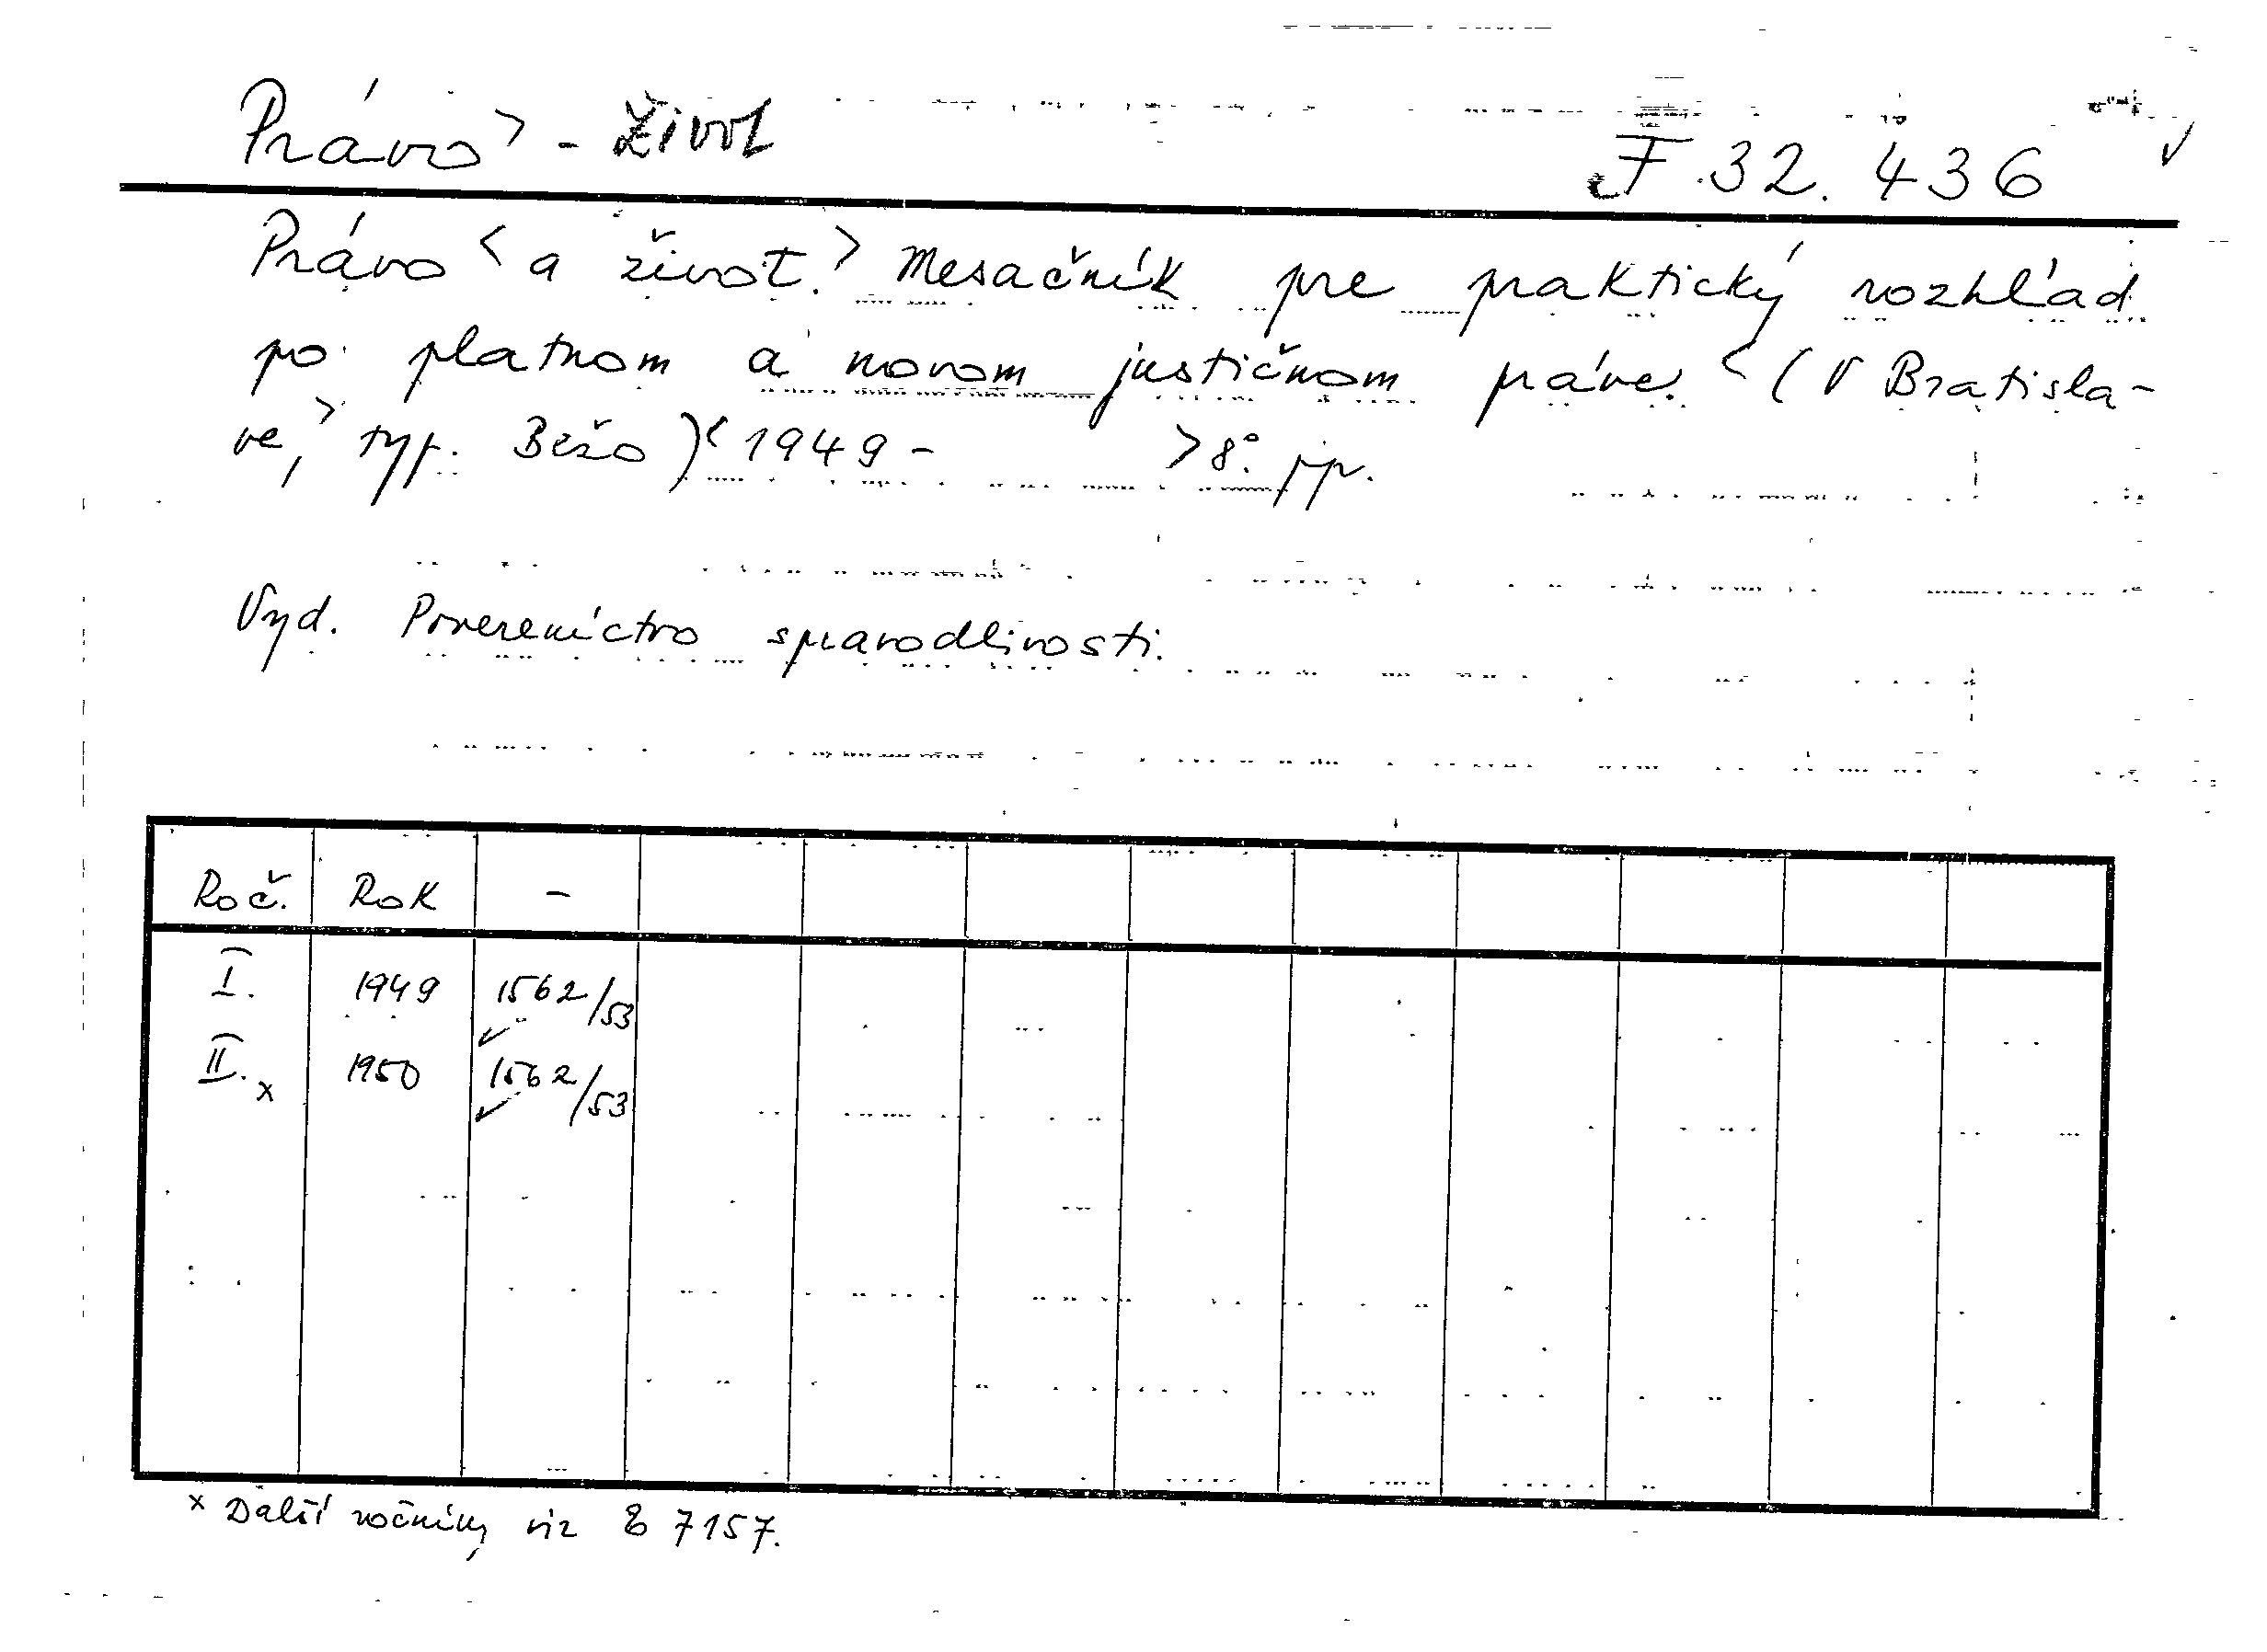 Právo> - Život
F 32.436 ✓
Právo < a život. > Mesačník pre praktický rozhľad
po platnom a novom justičnom práve. < (V Bratisla-
ve, > typ. Bežo) < 1949 - > 8°. pp.
Vyd. Povereníctvo spravodlivosti.
Roč. Rok -
I. 1949 1562/53
II. x 1950 1562/53
x Další ročníky viz 7157.